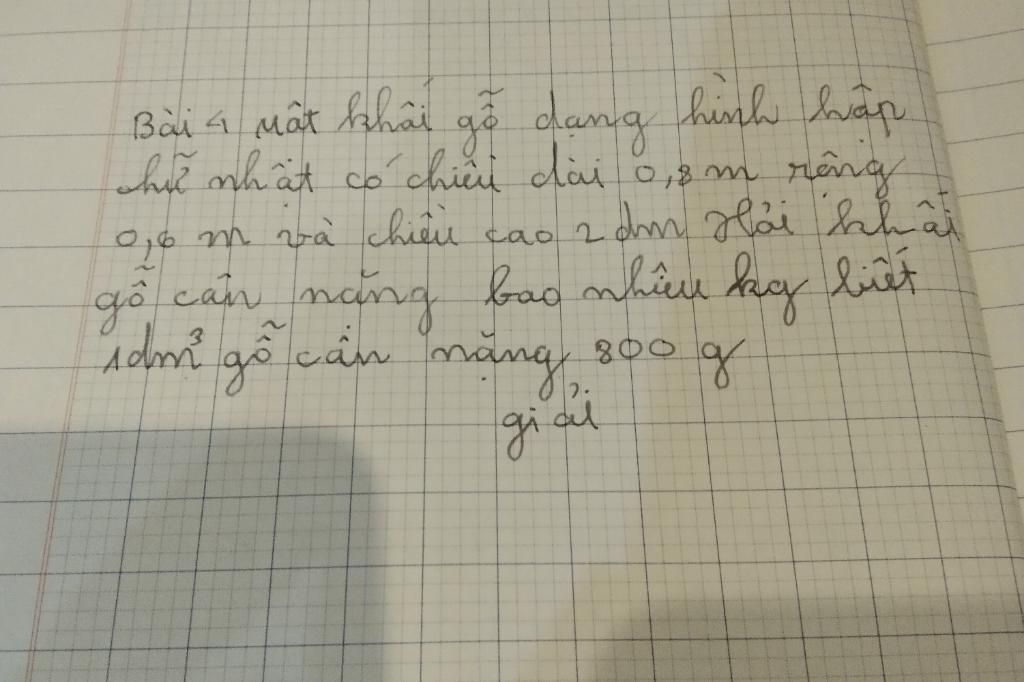 Bài 4 Một khối gỗ dạng hình hộp
chữ nhật có chiều dài 0,8 m rộng
0,6 m và chiều cao 2 dm Hỏi khối
gỗ cân nặng bao nhiêu kg biết
1dm³ gỗ cân nặng 800 g
giải